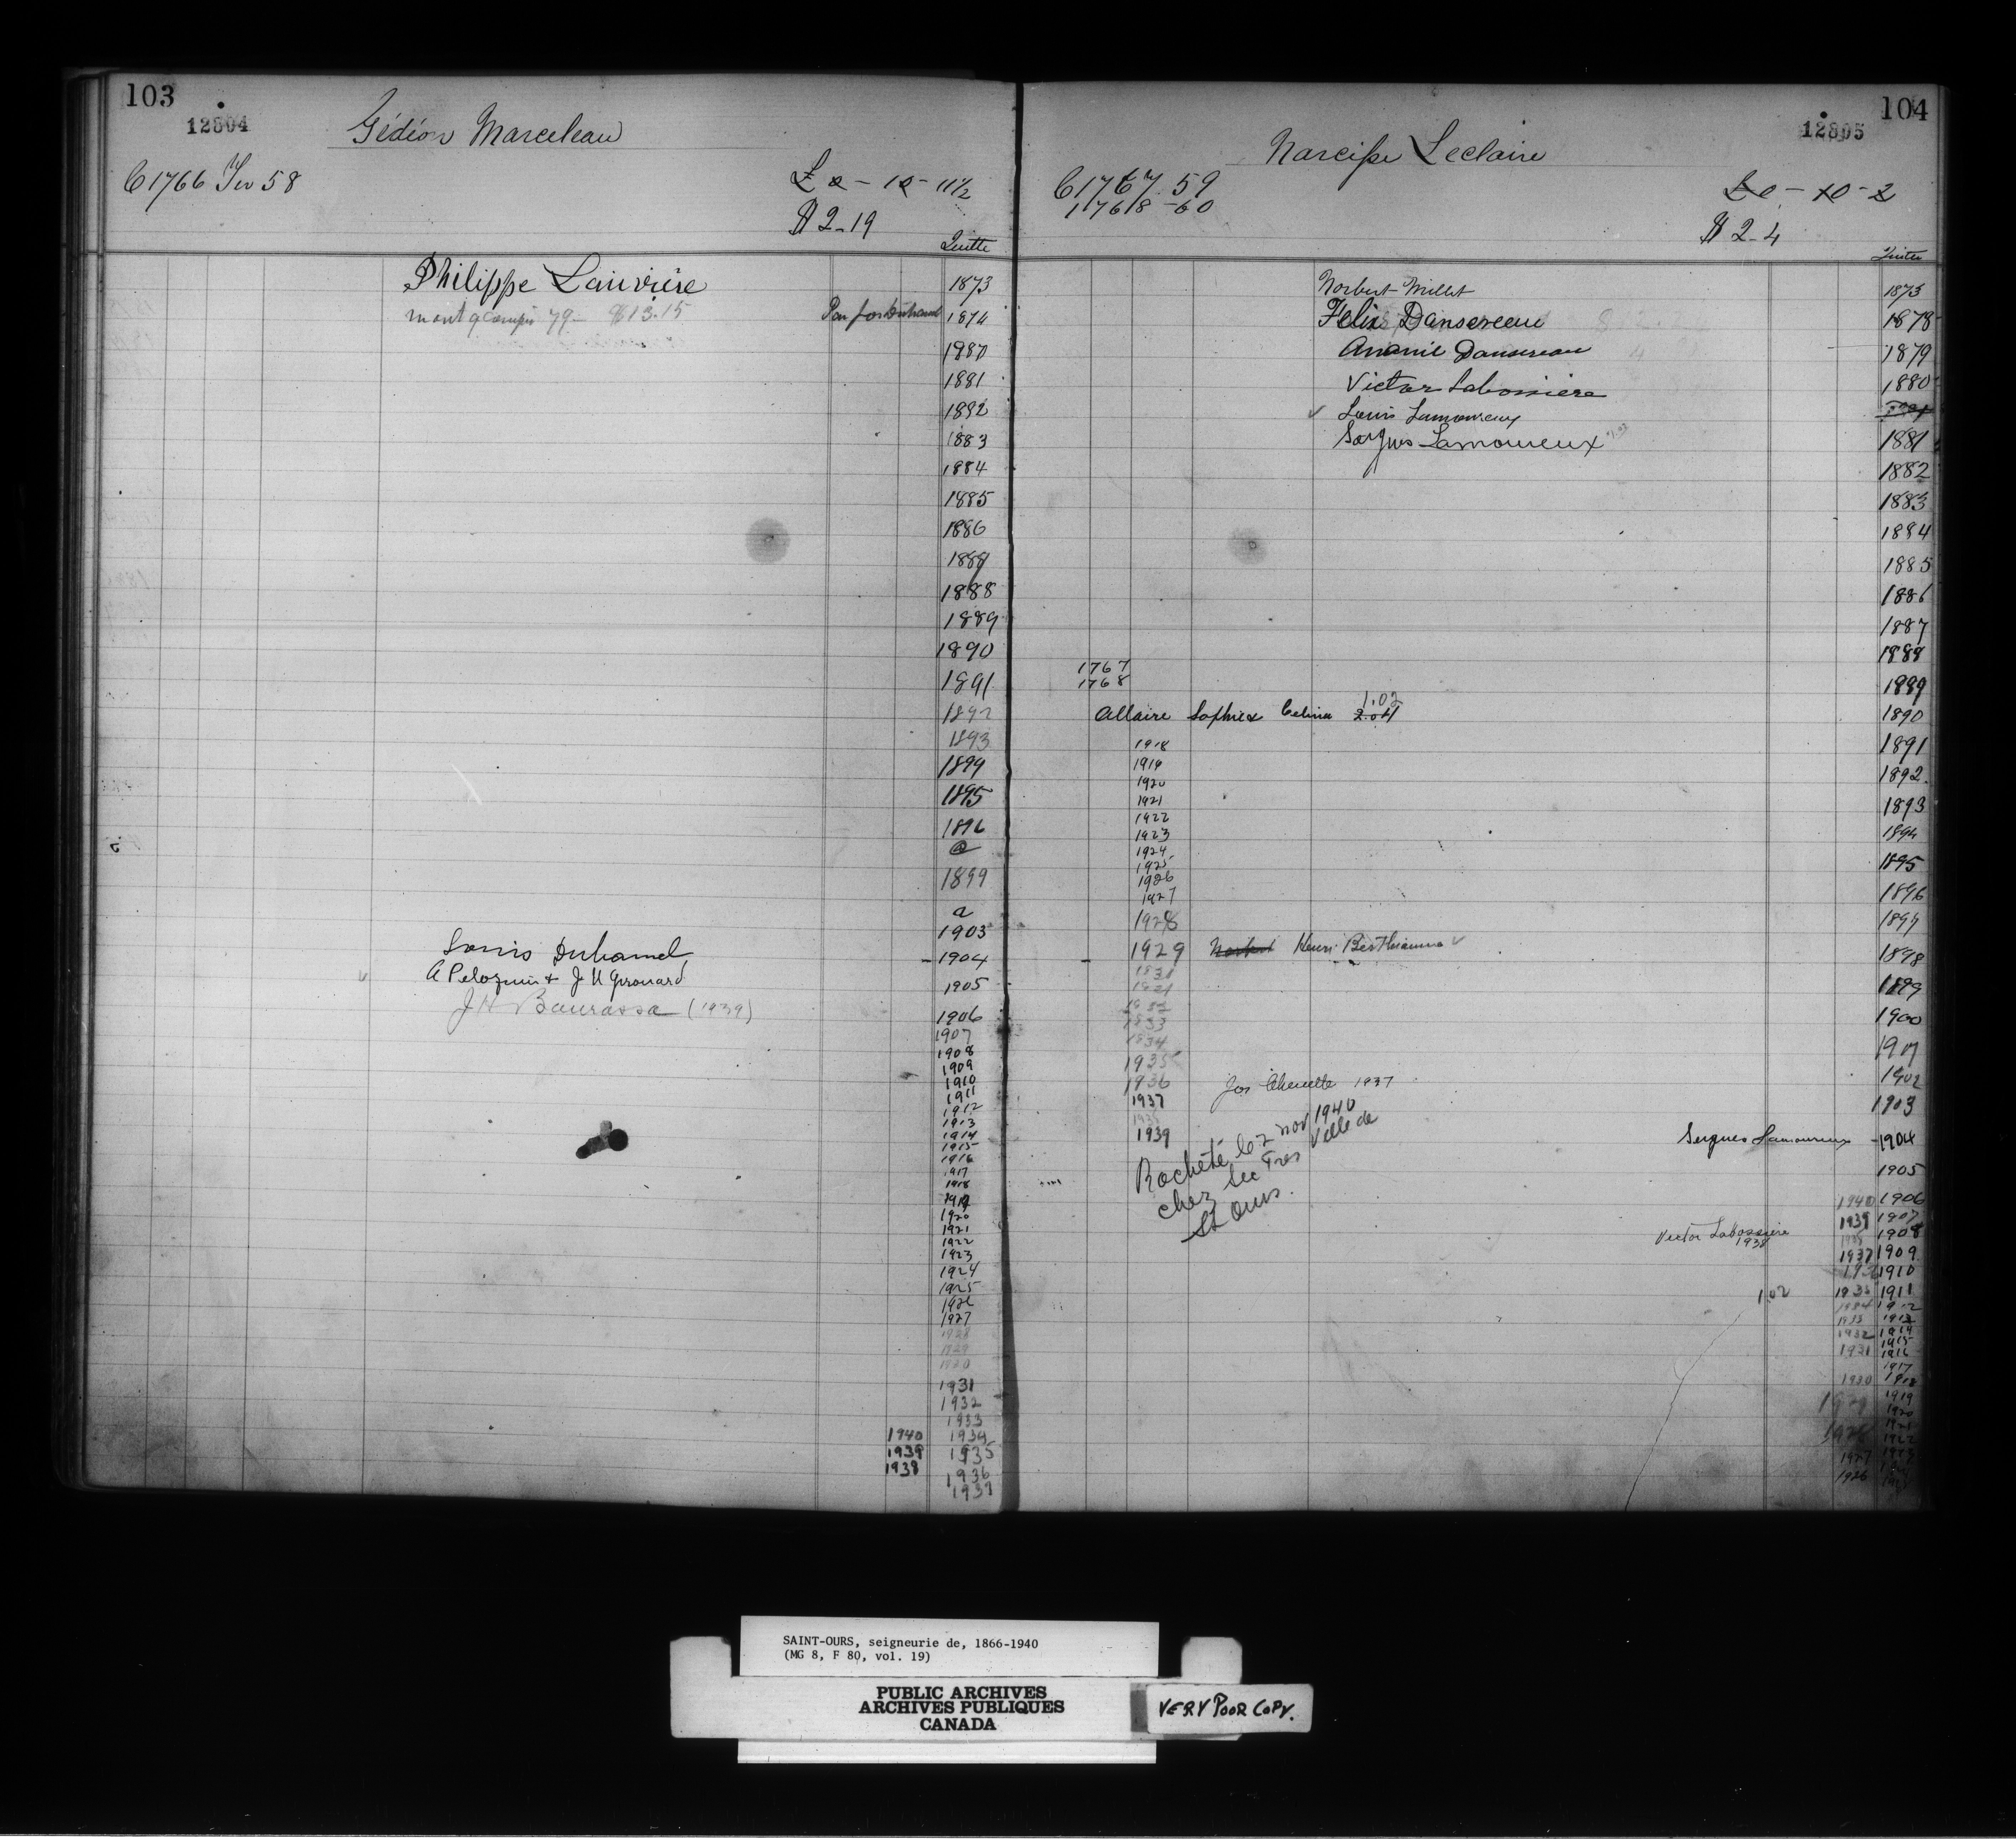 103
12804
Gédéon Marceleau
C1766 Ter 58
£ 0 - 10 - 11 1/2
$ 2-19
Quitte
Philippe Larivière
1873
1874
1880
1881
1882
1883
1884
1885
1886
1888
1889
1890
1891
1892
1893
1894
1895
1896
@
1899
a
1903
Louis Duhamel
1904
A Peloquin & J H Girouard
1905
J H Bourassa (1939)
1906
1907
1908
1909
1910
1911
1912
1913
1914
1915
1916
1917
1918
1919
1920
1921
1922
1923
1924
1925
1926
1927
1928
1929
1931
1932
1933
1940 1934
1939 1935
1938 1936
104
12805
Narcisse Leclaire
C1767 59
1768 - 60
£0 - 10 - 2
$ 2-4
Quitte
Norbert Millet 1873
Felix Dansereau 1878
Ananie Dansereau 1879
Victor Labossiere 1880
Louis Lamoureux
Sergus Lamoureux 1881
1882
1883
1884
1885
1886
1887
1888
1767
1768
1889
Allaire Sophie & Celina 2.04 1.02
1890
1891
1892
1893
1894
1895
1896
1897
1898
1899
1900
1901
1902
1903
1918
1919
1920
1921
1922
1923
1924
1925
1926
1927
1928
1929 Henri Berthiaume
1933
1934
1935
1936
Jos Chenette 1937
1937
1939
Racheté le 2 nov 1940
chez Sec Tres Ville de
St Ours.
Sergues Lamoureux 1904
1905
1940 1906
1939 1907
Victor Labossiere
1938
1908
1937 1909
1910
1.02
1935 1911
1934 1912
1933 1913
1932 1914
1915
1931 1916
1917
1930 1918
1919
1920
1927
1926
SAINT-OURS, seigneurie de, 1866-1940
(MG 8, F 80, vol. 19)
PUBLIC ARCHIVES
ARCHIVES PUBLIQUES
CANADA
VERY POOR COPY.